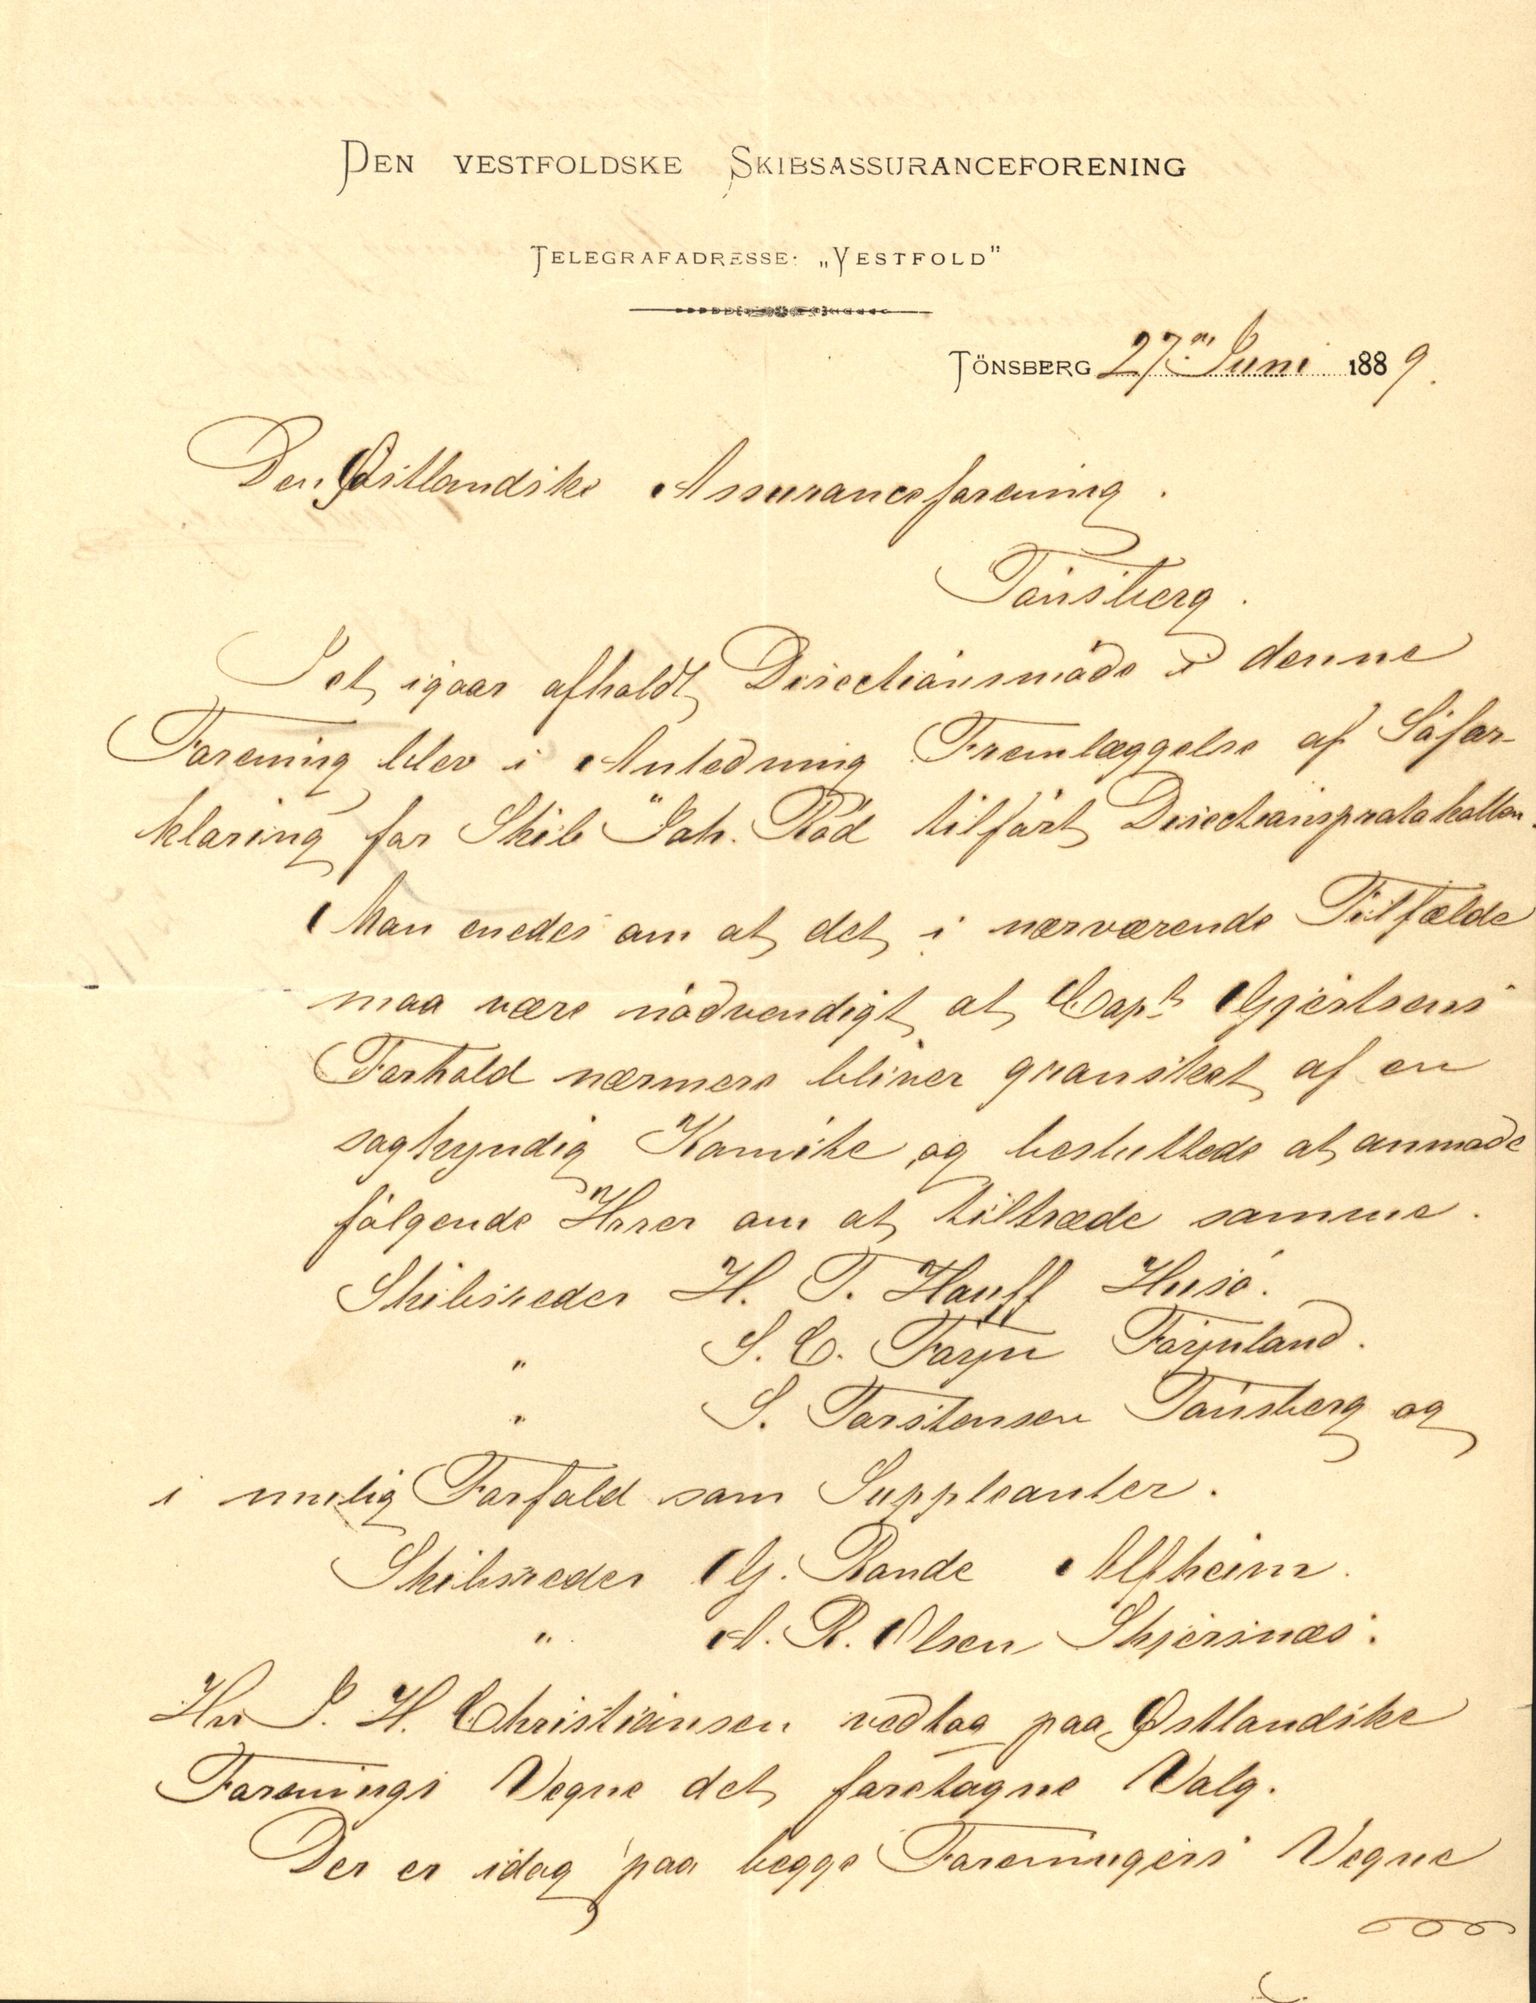 DEN VESTFOLDSKE SKIBSASSURANCEFORENING
TELEGRAFADRESSE: „VESTFOLD"
TÖNSBERG 27de Juni 1889.
Den Østlandske Assuranceforening.
Tönsberg.
I et igaar afholdt Directionsmöde i denne
Forening blev i Anledning Fremlæggelse af Söfor-
klaring for Skib "Joh. Rød tilfört Directionsprotokollen.
Man enedes om at det i nærværende Tilfælde
maa være nödvendigt at Capt. Gjertsens
Forhold nærmere bliver gransket af en
sagkyndig Komite og besluttede at anmode
fölgende Hrrer om at tiltræde samme.
Skibsreder H. T. Hauff Husö.
" S. C. Föyn Föynland.
" S. Torstensen Tönsberg og
i mulig Forfald som Suppleanter.
Skibsreder G. Bonde Alfheim.
" A. R. Olsen Skjersnæs:
Hr J. H. Christiansen vedtog paa Østlandske
Forenings Vegne det foretagne Valg.
Der er idag paa begge Foreningers Vegne